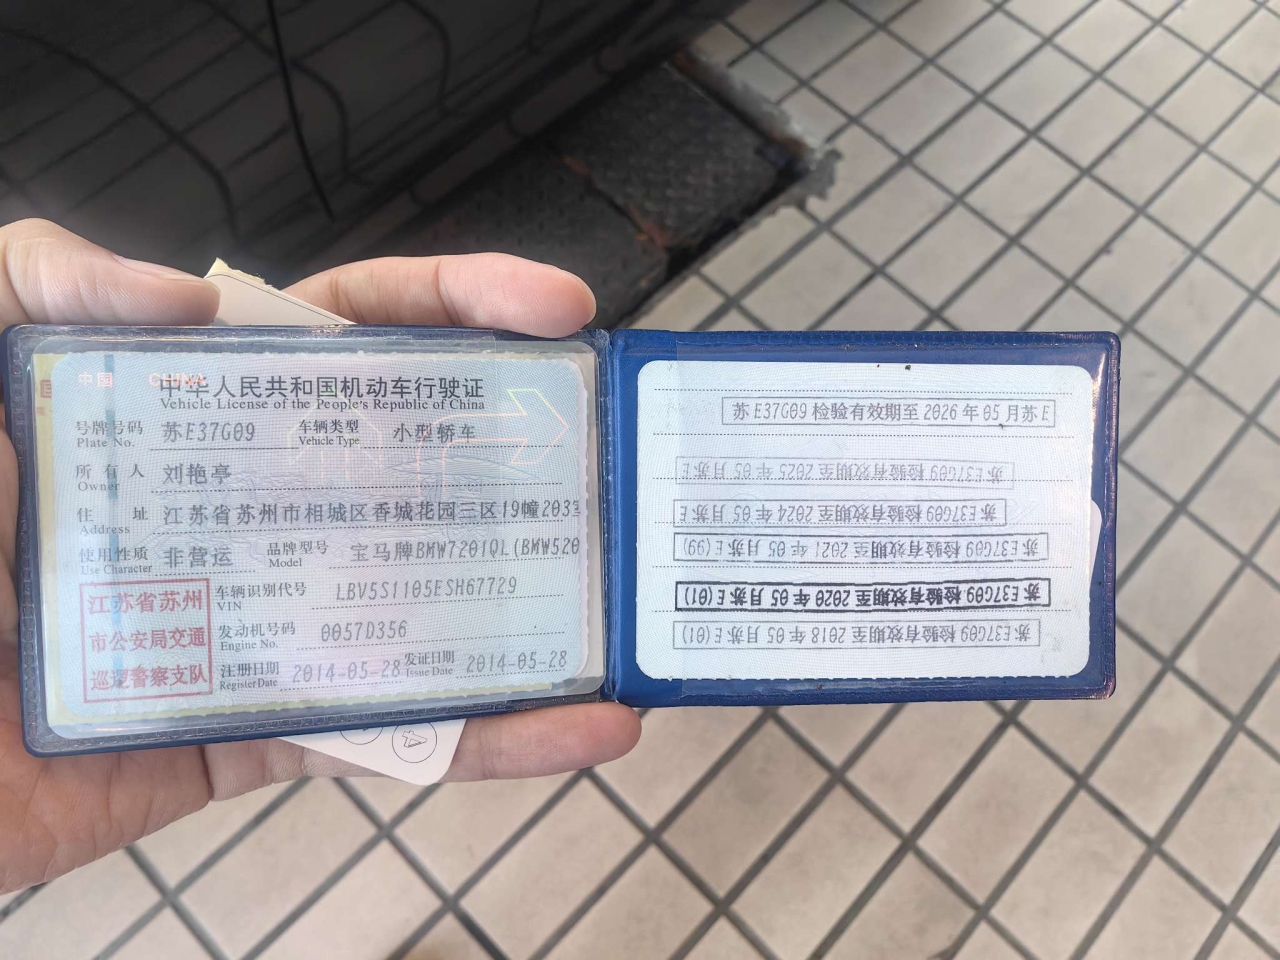 中国 CHINA
中华人民共和国机动车行驶证
Vehicle License of the People's Republic of China
号牌号码 苏E37G09 车辆类型 小型轿车
Plate No. Vehicle Type
所有人 刘艳亭
Owner
住址 江苏省苏州市相城区香城花园三区19幢203室
Address
使用性质 非营运 品牌型号 宝马牌BMW7201QL(BMW520
Use Character Model
江苏省苏州
市公安局交通
巡逻警察支队
车辆识别代号 LBV5S1105ESH67729
VIN
发动机号码 0057D356
Engine No.
注册日期 2014-05-28 发证日期 2014-05-28
Register Date Issue Date
苏E37G09 检验有效期至 2026年05月苏E
苏E37G09 检验有效期至 2025年05月苏E
苏E37G09 检验有效期至 2024年05月苏E
苏E37G09 检验有效期至 2021年05月苏E(99)
苏E37G09 检验有效期至 2020年05月苏E(01)
苏E37G09 检验有效期至 2018年05月苏E(01)